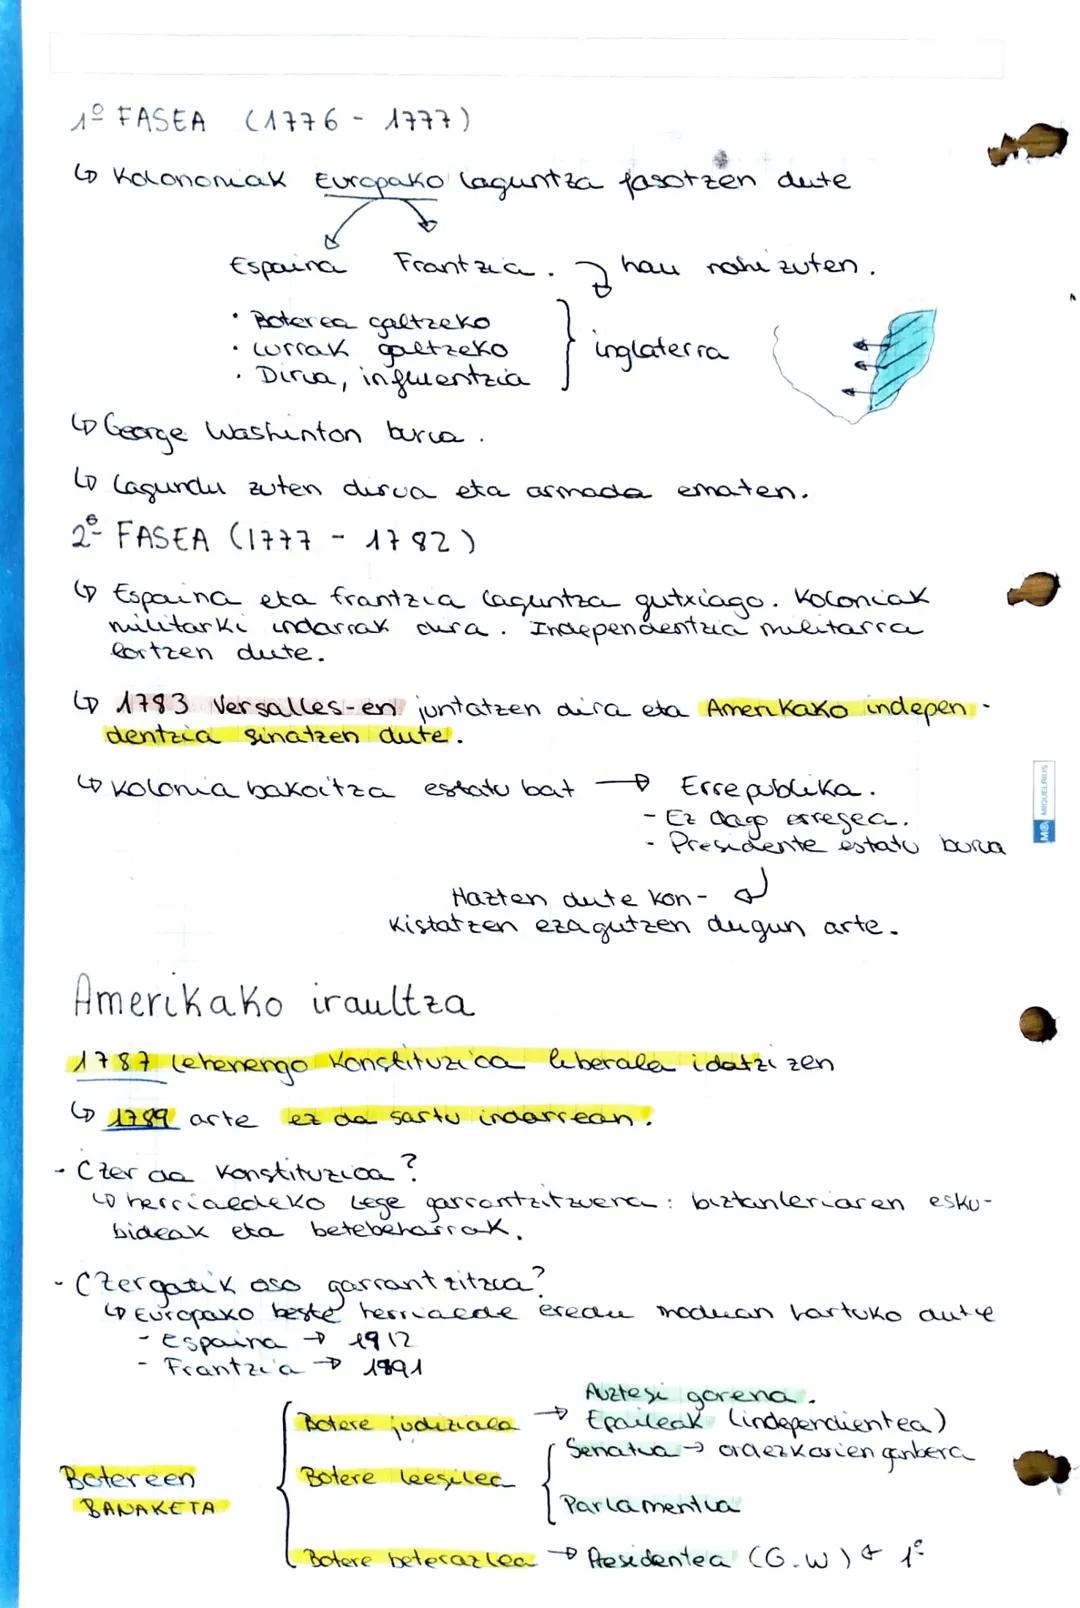 1º FASEA (1776 - 1777)
↳ Kolononiak Europako laguntza jasotzen dute
Espaina Frantzia. hau nahi zuten.
• Boterea galtzeko
• Lurrak galtzeko
• Dirua, influentzia
inglaterra
↳ George Washinton burua.
↳ Lagundu zuten dirua eta armada ematen.
2º FASEA (1777 - 1782)
↳ Espaina eta frantzia laguntza gutxiago. Koloniak
militarki indarrak dira. Independentzia militarra
lortzen dute.
↳ 1783 Versalles-en juntatzen dira eta Amerikako indepen-
dentzia sinatzen dute.
↳ Kolonia bakoitza estatu bat → Errepublika.
- Ez dago erregea.
- Presidente estatu burua
Hazten dute kon-
kistatzen ezagutzen dugun arte.
MIQUELRIUS
Amerikako iraultza
1787 Lehenengo Konstituzioa liberala idatzi zen
↳ 1789 arte ez da sartu indarrean.
- Czer da Konstituzioa?
↳ herrialdeko Lege garrantzitzuena: biztanleriaren esku-
bideak eta betebeharrak.
- Czergatik oso garrantzitzua?
↳ Europako beste herrialde eredu moduan hartuko dute
- Espaina → 1912
- Frantzia → 1891
Auztegi gorena.
Botere judiziala → Epaileak (independientea)
Senatua → ordezkarien ganbera
Botereen
BANAKETA
Botere leegilea
Parlamentua
Botere beterazlea → Presidentea (G.W) ← 1º